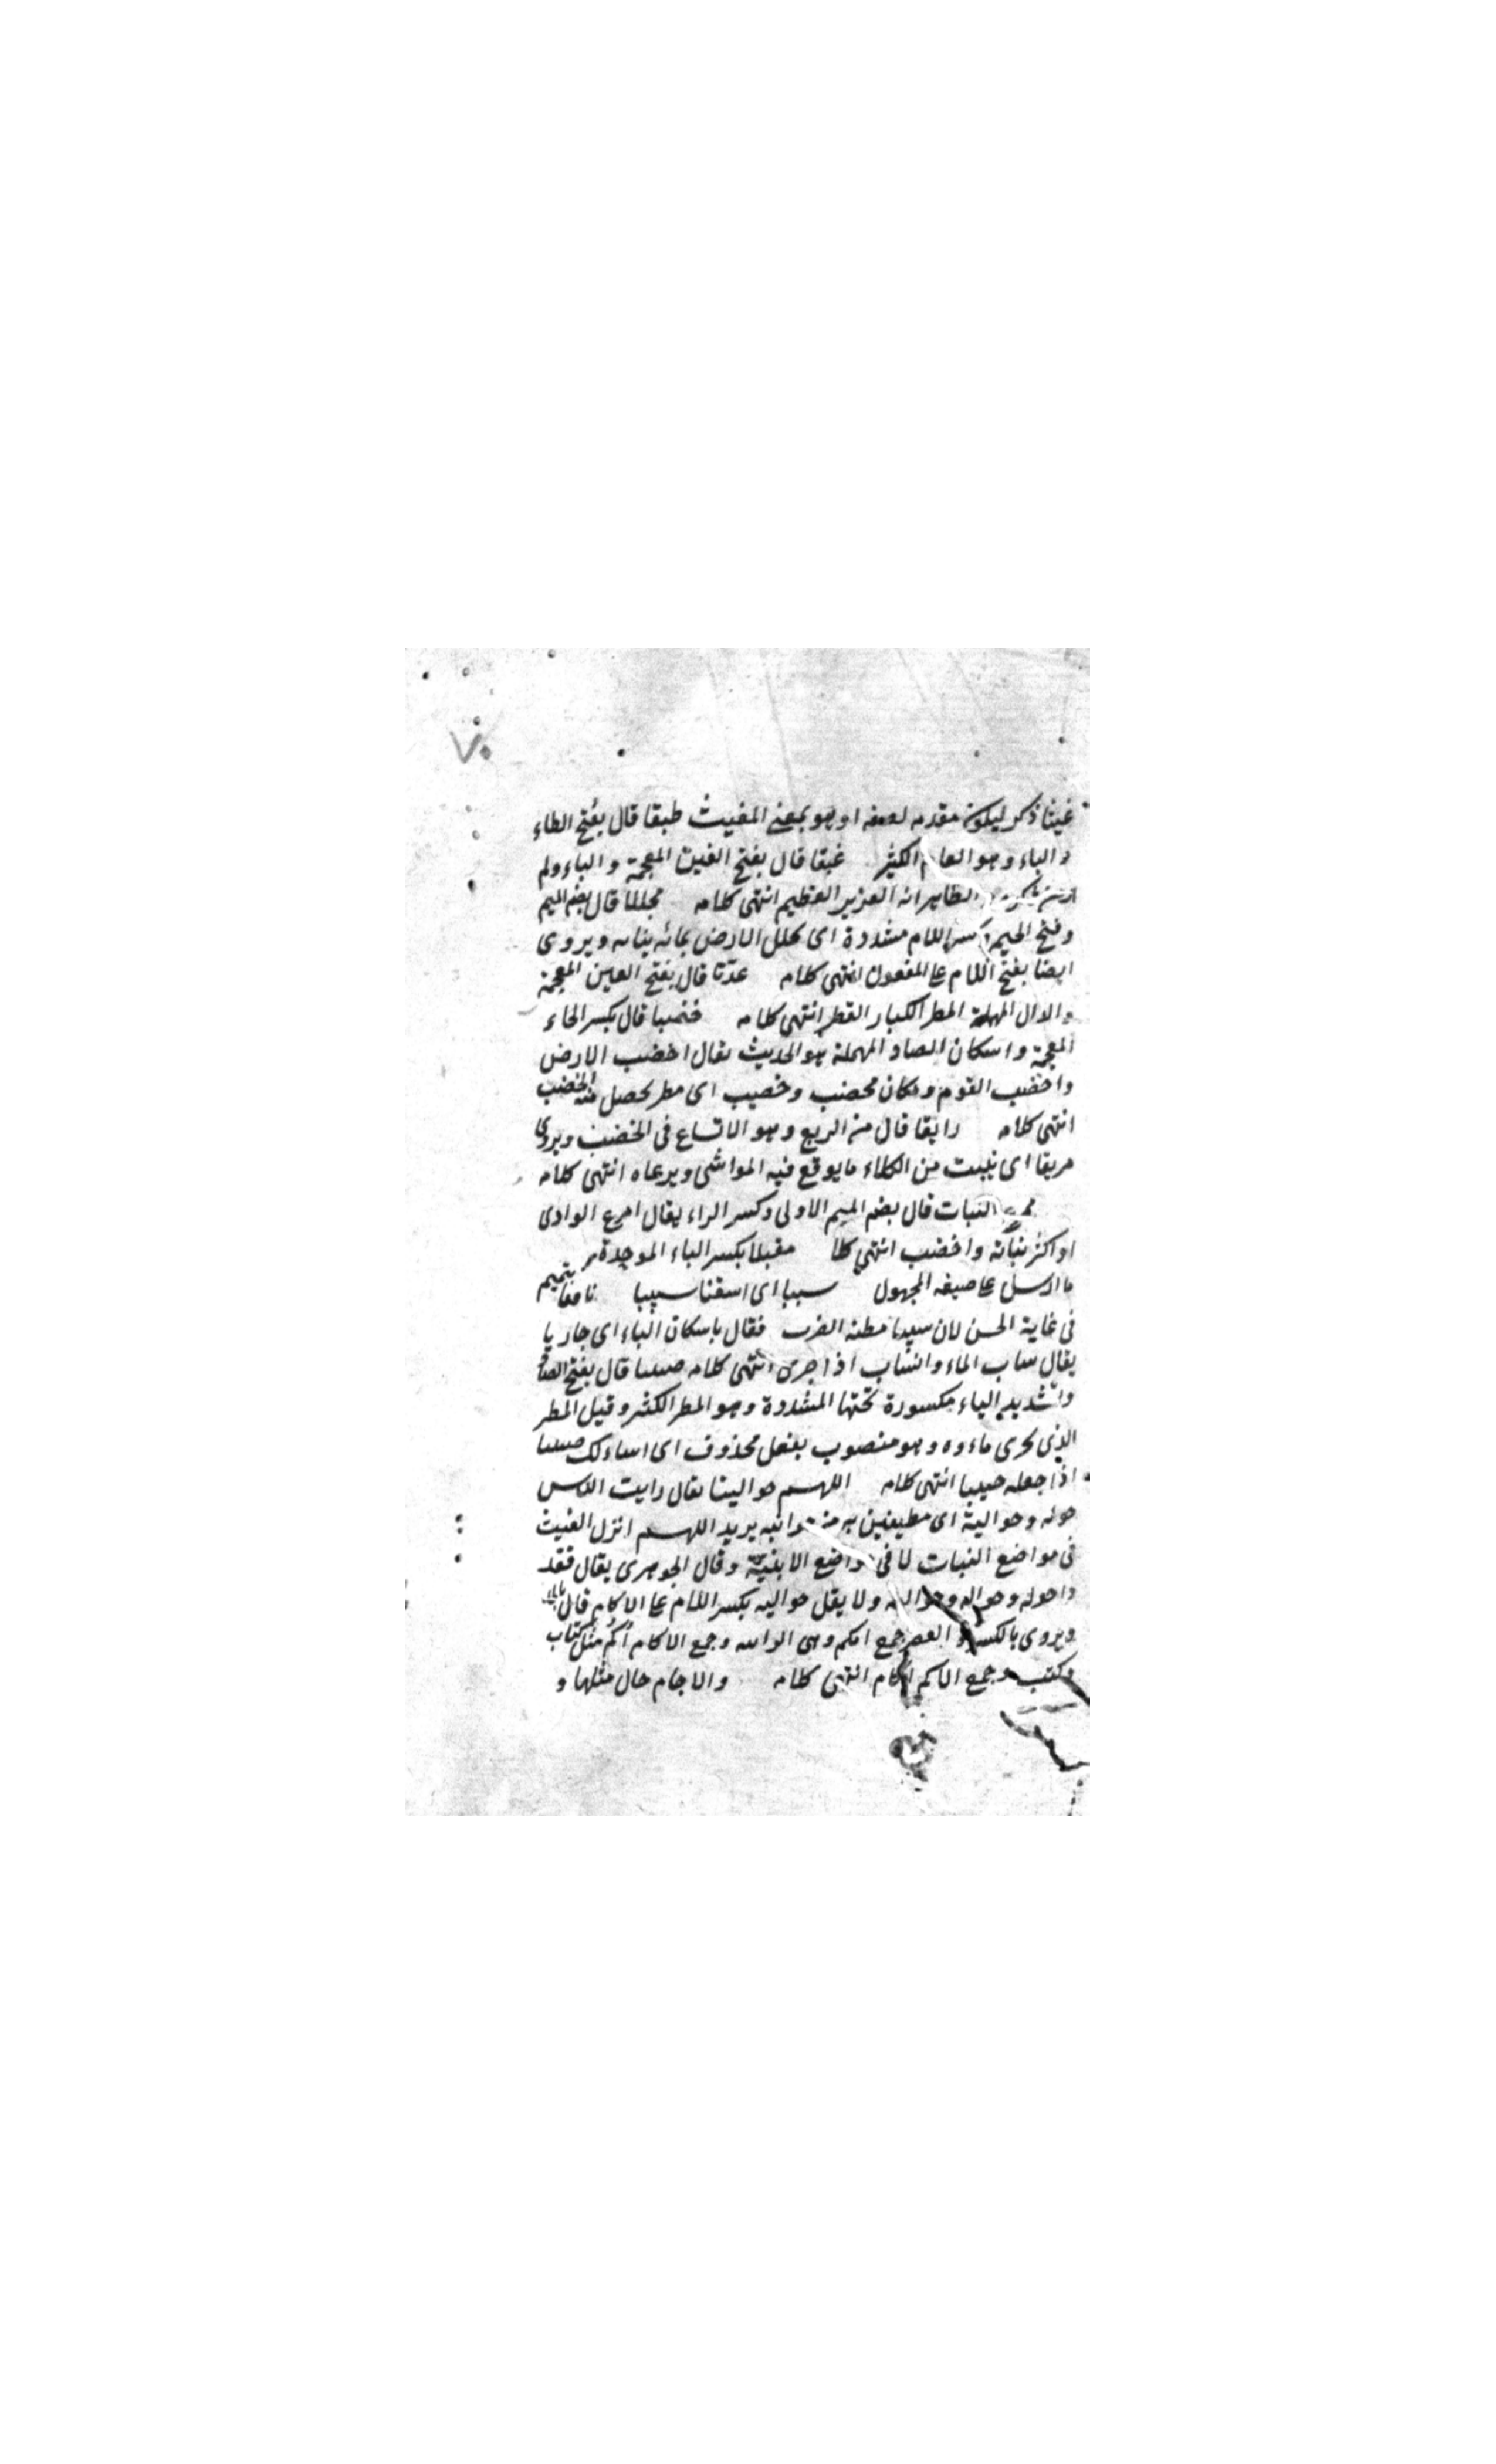 ٧٠
غيثا ذكر ليكون مقدمه لصفه او هو بمعنى المغيث طبقا قال بفتح الطاء
والباء وهو العام الكثير غبقا قال بفتح الغين المعجمة والباء ولم
الظاهر انه العزيز العظيم انتهى كلامه مجللا قال بضم الميم
وفتح الجيم وكسر اللام مشددة اى يجلل الارض بمائه بنباته ويروى
ايضا بفتح اللام على المفعول انتهى كلامه غدقا قال بفتح الغين المعجمة
والدال المهملة المطر الكبار القطر انتهى كلامه خصبا قال بكسر الخاء
المعجمة واسكان الصاد المهملة هو الحديث يقال اخضب الارض
واخضب القوم ومكان مخضب وخصيب اى مطر يحصل منه الخضب
انتهى كلامه رايقا قال من الريع وهو الاتساع فى الخضب ويروى
مريقا اى ينبت من الكلاء ما يوقع فيه المواشى ويرعاه انتهى كلامه
النبات قال بضم الميم الاولى وكسر الراء يقال امرع الوادى
اذا كثر نباته واخضب انتهى كلا مقبلا بكسر الباء الموحدة
ما ارسل على صيغه المجهول سيبا اى اسقنا سيبا نافعا تتميم
فى غاية الحسن لان سيبا مظنه الضرب فقال باسكان الياء اى جاريا
يقال ساب الماء وانساب اذا جرى انتهى كلامه صيبا قال بفتح الصاد
وتشديد الياء مكسورة تحتها المشددة وهو المطر الكثير وقيل المطر
الذى يجرى ماءوه وهو منصوب بفعل محذوف اى اساءلك صيبا
اذا جعله صيبا انتهى كلامه اللهم حوالينا يقال رايت الناس
حوله وحواليه اى مطيفين به من جوانبه يريد اللهم انزل الغيث
فى مواضع النبات لا فى مواضع الابنية وقال الجوهرى يقال قعد
واحوله وحواله وحواليه ولا يقل حواليه بكسر اللام على الاكام قال
ويروى بالكسر جمع اكم وهى الرابيه وجمع الاكام اُكُم مثل كتاب
وكتب وجمع الاكم اكام انتهى كلامه والاجام حال مثلها و